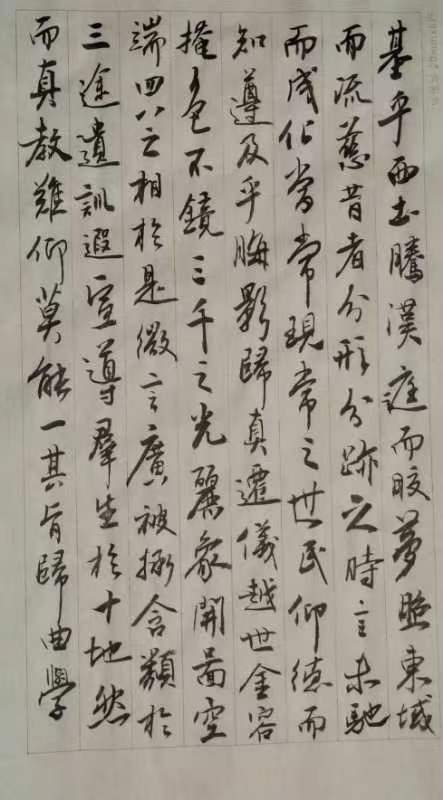 基乎西土騰漢庭而皎夢照東域
而流慈昔者分形分跡之時言未馳
而成化當常現常之世民仰德而
知遵及乎晦影歸真遷儀越世金容
掩色不鏡三千之光麗象開圖空
端四八之相於是微言廣被拯含類於
三途遺訓遐宣導羣生於十地然
而真教難仰莫能一其旨歸曲學